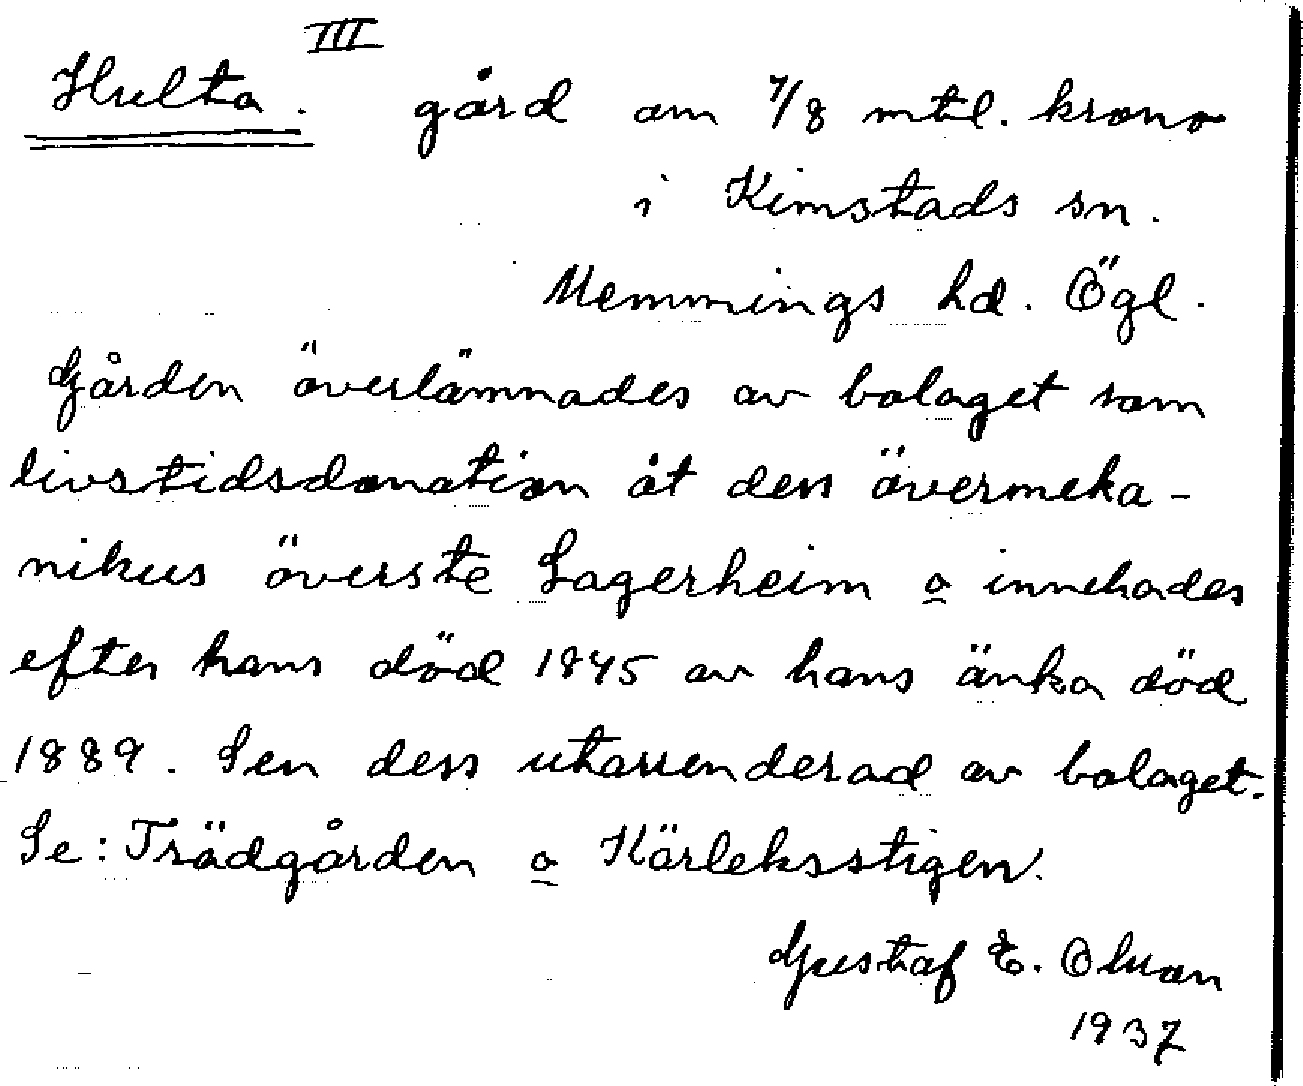 III
Hulta. gård om 7/8 mtl. krono
i Kimstads sn.
Memmings hd. Ögl.
Gården överlämnades av bolaget som
livstidsdonation åt dess övermeka-
nikus överste Lagerheim o innehades
efter hans död 1845 av hans änka död
1889. Sen dess utarrenderad av bolaget.
Se: Trädgården o Kärleksstigen.
Gustaf E. Olsson
1937